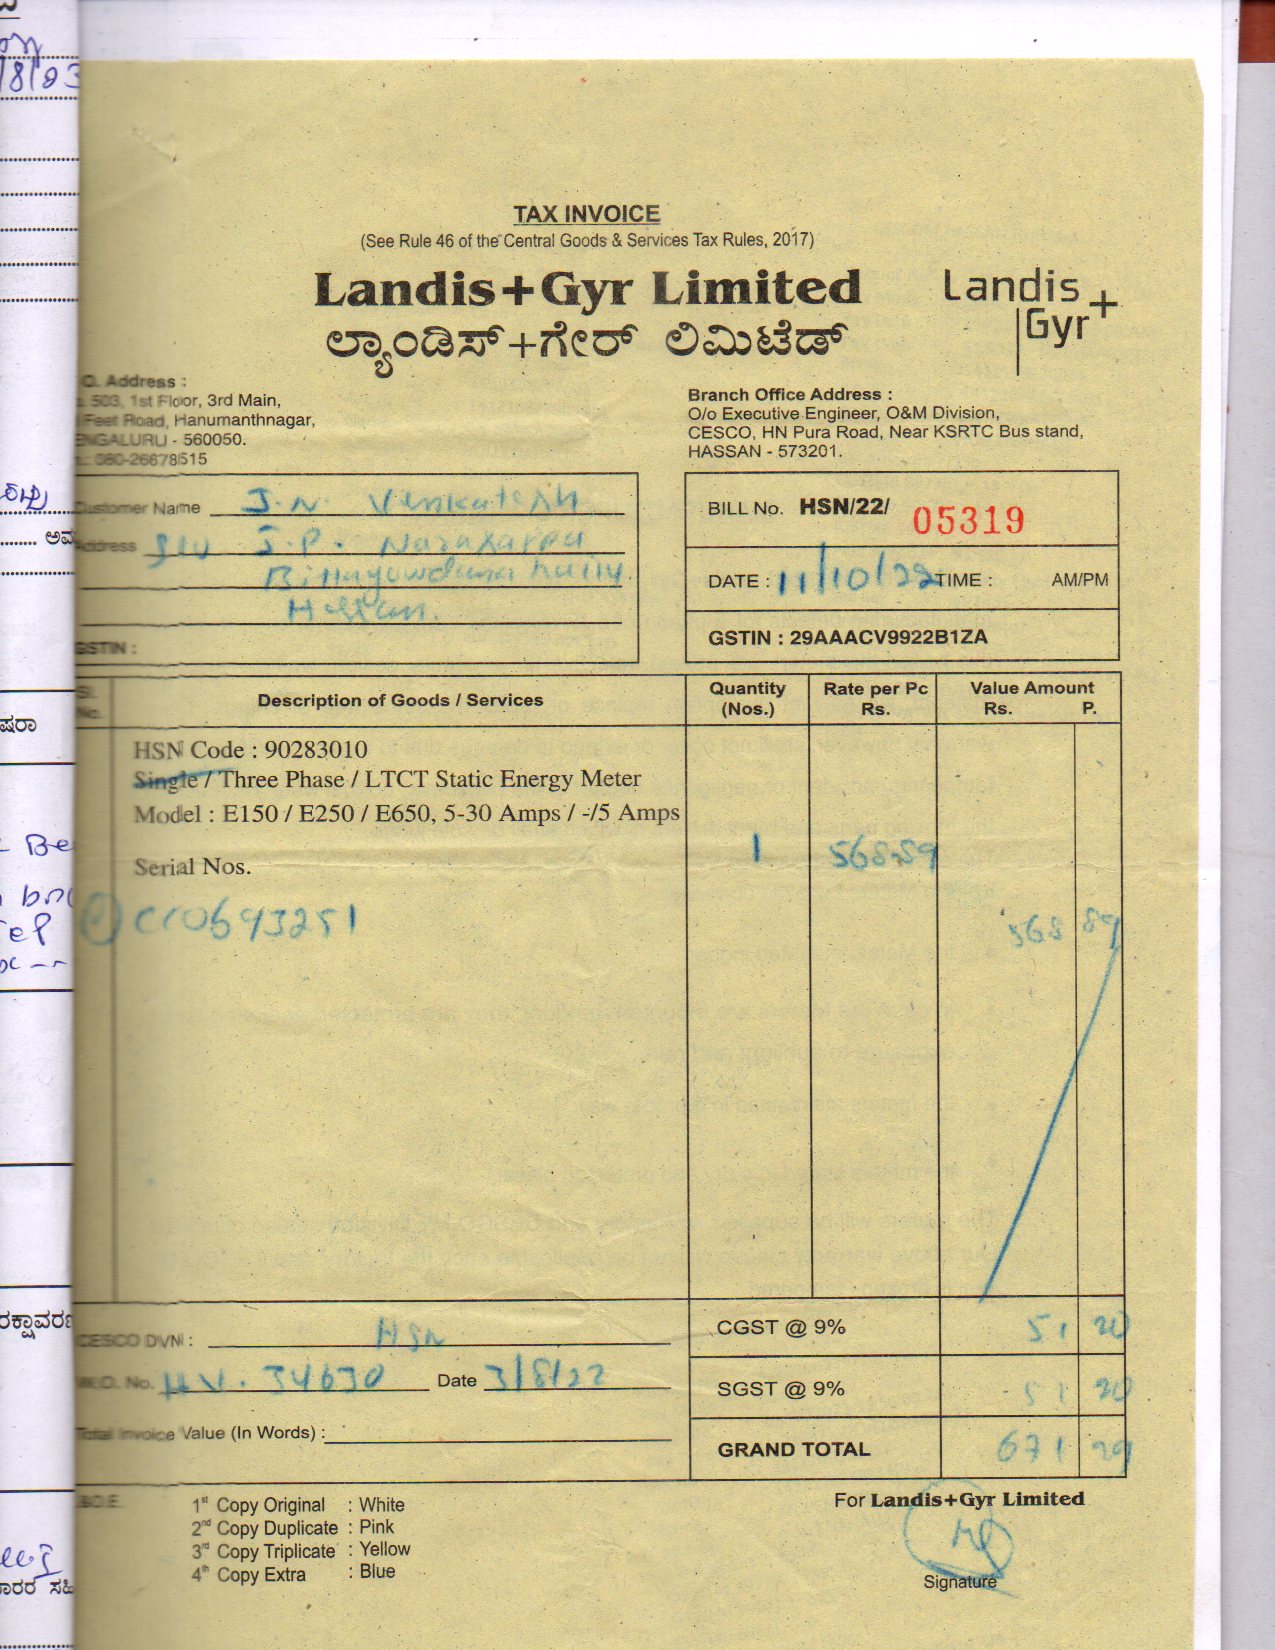 TAX INVOICE
(See Rule 46 of the Central Goods & Services Tax Rules, 2017)
Landis+Gyr Limited
ಲ್ಯಾಂಡಿಸ್+ಗೇರ್ ಲಿಮಿಟೆಡ್
Landis+
Gyr
O. Address :
503, 1st Floor, 3rd Main,
Feet Road, Hanumanthnagar,
ENGALURU - 560050.
080-26678515
Branch Office Address :
O/o Executive Engineer, O&M Division,
CESCO, HN Pura Road, Near KSRTC Bus stand,
HASSAN - 573201.
Customer Name J.N. Venkatesh
Address S/o J.P.
Hassan.
GSTIN :
BILL No. HSN/22/ 05319
DATE : 11/10/22 TIME : AM/PM
GSTIN : 29AAACV9922B1ZA
Sl. No.
Description of Goods / Services
Quantity (Nos.)
Rate per Pc Rs.
Value Amount
Rs. P.
HSN Code : 90283010
Single / Three Phase / LTCT Static Energy Meter
Model : E150 / E250 / E650, 5-30 Amps / -/5 Amps
Serial Nos.
1 568.89
568 89
CESCO DVN : HSN
CGST @ 9% 51 20
W.O. No. 34630 Date 3/8/22
SGST @ 9% 51 20
Total Invoice Value (In Words) :
GRAND TOTAL 671 29
1st Copy Original : White
2nd Copy Duplicate : Pink
3rd Copy Triplicate : Yellow
4th Copy Extra : Blue
For Landis+Gyr Limited
Signature